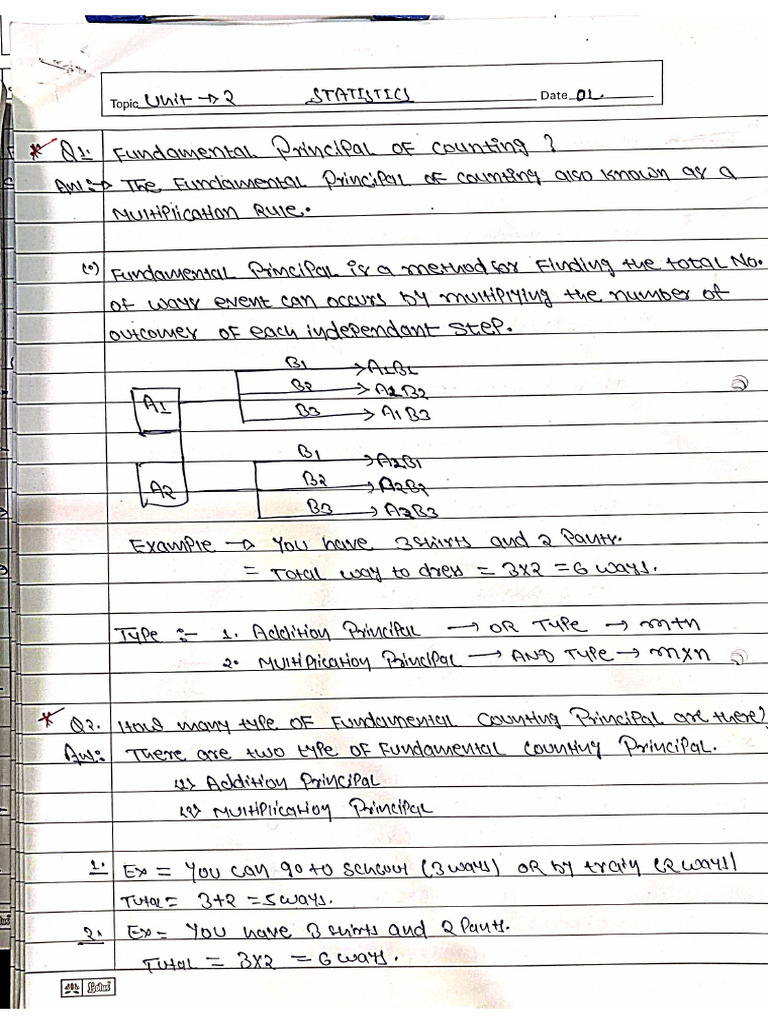 Topic Unit → 2 STATISTICS Date 02
* Q1. Fundamental Principal of counting ?
Ans:→ The Fundamental Principal of counting also known as a
Multiplication Rule.
(•) Fundamental Principal is a method for Finding the total No.
of ways event can occurs by multiplying the number of
outcomes of each independant step.
B1 → A1B1
B2 → A2B2
A1
B3 → A1B3
B1 → A2B1
B2 → A2B2
A2
B3 → A2B3
Example → You have 3 shirts and 2 Pants.
= Total way to dress = 3x2 = 6 ways.
Type :- 1. Addition Principal → OR Type → m+n
2. Multiplication Principal → AND Type → mxn
* Q2. How many type of Fundamental Counting Principal are there?
Ans:- There are two type of Fundamental Counting Principal.
(1) Addition Principal
(2) Multiplication Principal
1. Ex = You can go to school (3 ways) OR by train (2 ways)
Total = 3+2 = 5 ways.
2. Ex = You have 3 shirts and 2 Pants.
Total = 3x2 = 6 ways.
Lotus